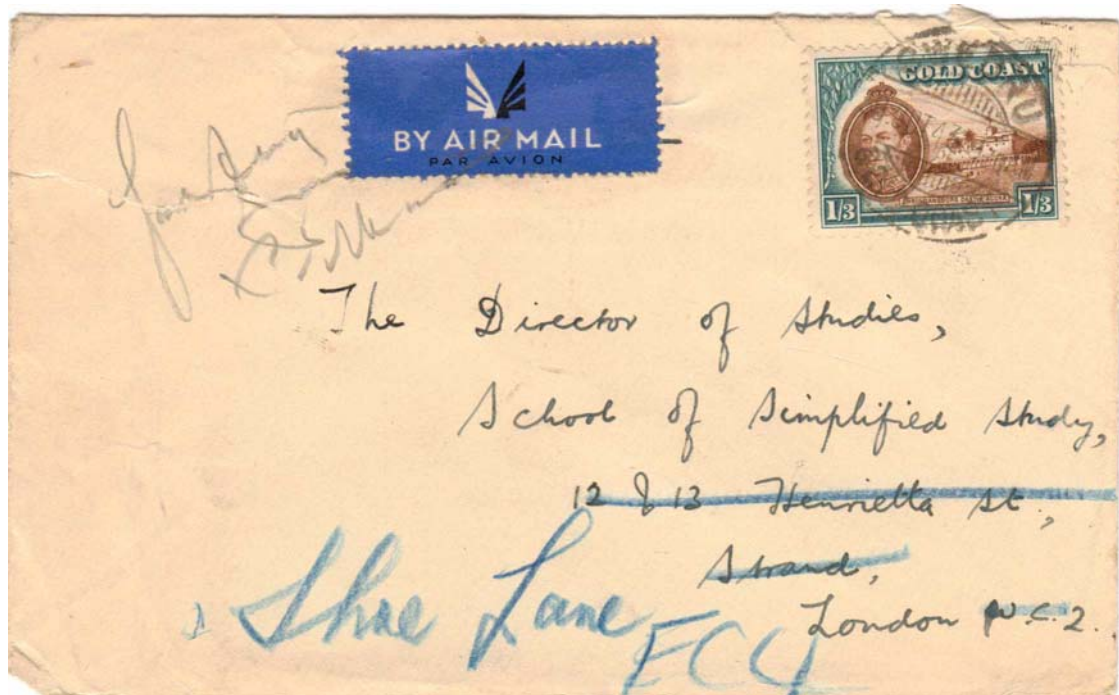 BY AIR MAIL
PAR AVION
GOLD COAST
1/3 1/3
The Director of Studies,
School of Simplified Study,
12 & 13 Henrietta St,
Strand,
London W.C.2.
Shoe Lane
EC4